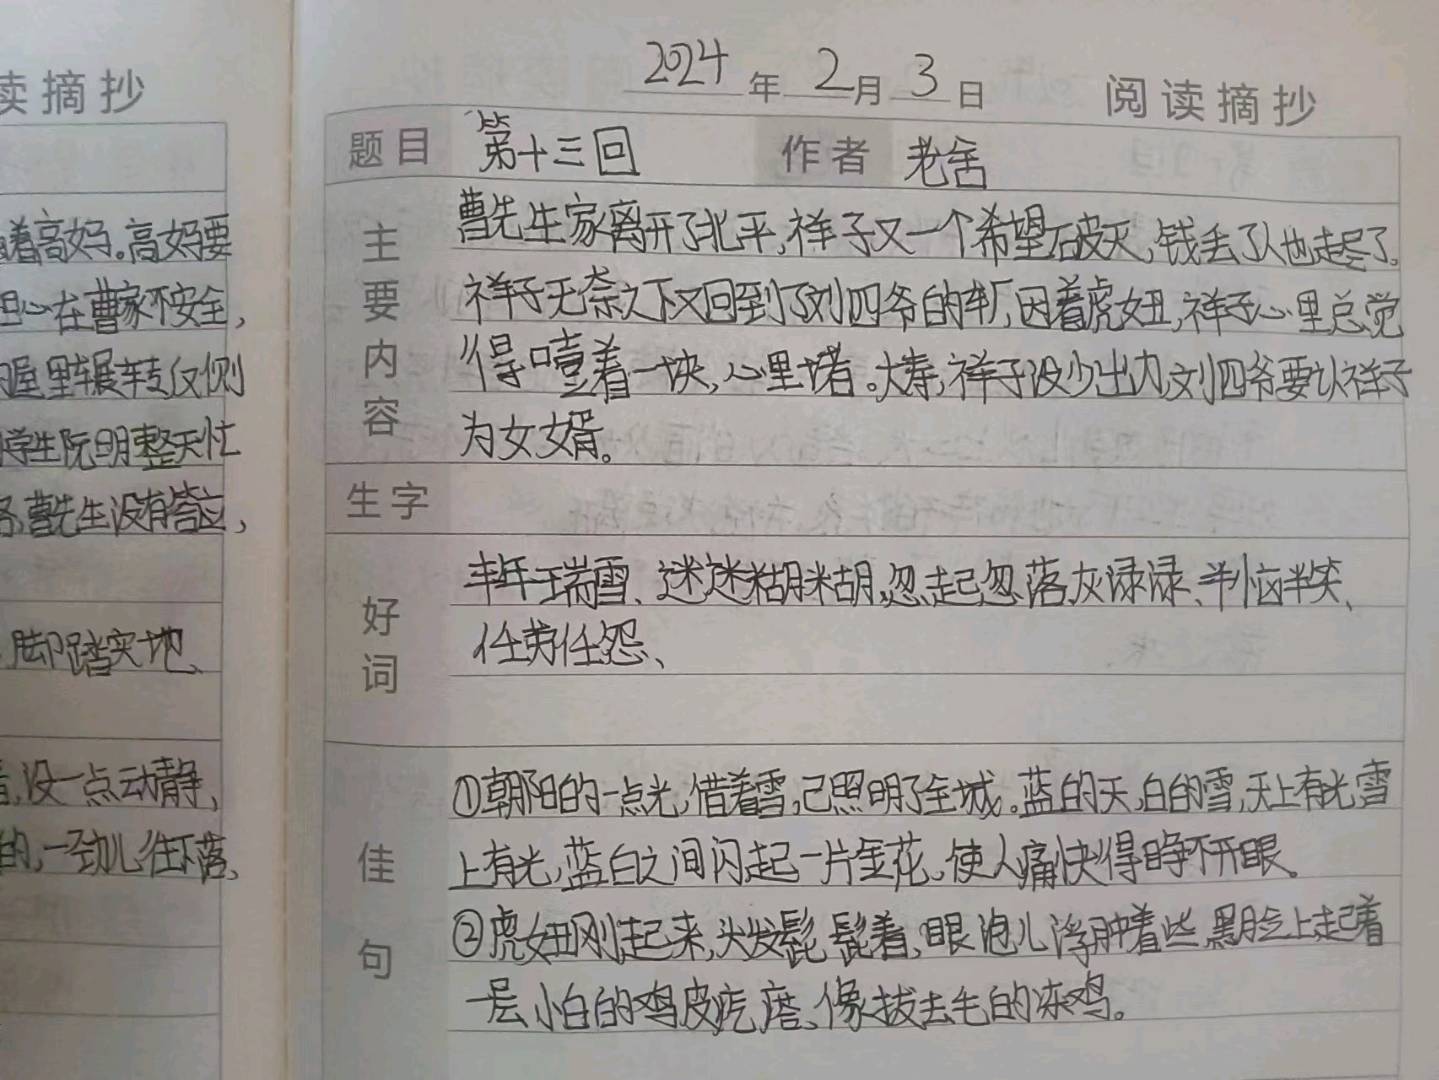 读摘抄
着高妈。高妈要
担心在曹家不安全，
屋里辗转反侧
学生阮明整天忙
曹先生没有答应，
脚踏实地、
着，没一点动静、
的，一劲儿往下落、
2024年2月3日 阅读摘抄
题目 第十三回 作者 老舍
主要内容
曹先生家离开了北平，祥子又一个希望破灭，钱丢了人也走尽了。
祥子无奈之下又回到了刘四爷的车厂，因着虎妞，祥子心里总觉
得噎着一块，心里堵。大寿，祥子没少出力，刘四爷要认祥子
为女女婿。
生字
好词
丰年瑞雪、迷迷糊糊，忽起忽落灰渌渌、半恼半笑、
任劳任怨、
佳句
①朝阳的一点光，借着雪，已照明了全城。蓝的天，白的雪，天上有光，雪
上有光，蓝白之间闪起一片金花，使人痛快得睁不开眼。
②虎妞刚起来，头发髭髭着，眼泡儿浮肿着些，黑脸上起着
一层小白的鸡皮疙瘩、像拔去毛的冻鸡。